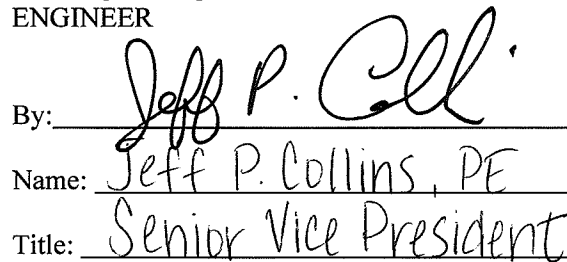 ENGINEER
By: Jeff P. Coll
Name: Jeff P. Collins, PE
Title: Senior Vice President